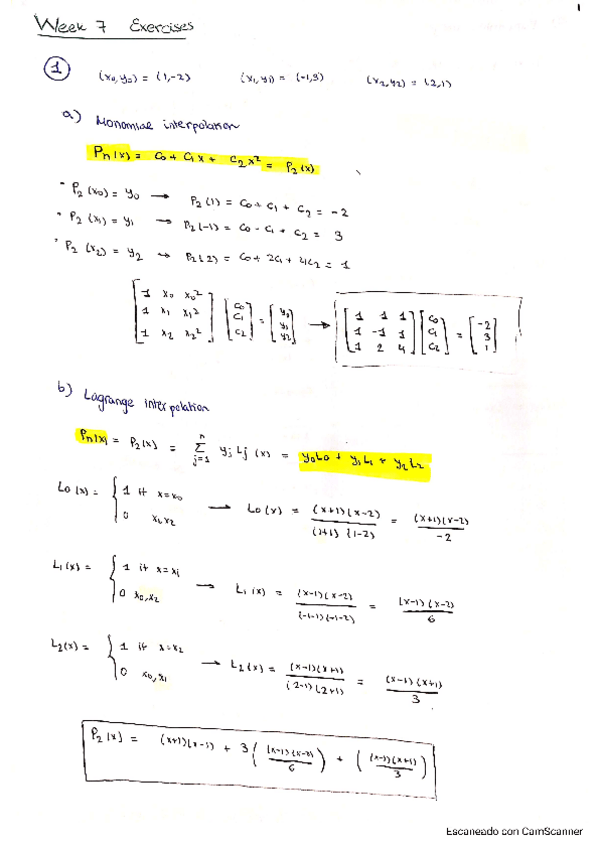 1
Week 7 Exercises
① (x₀,y₀) = (1,-2) (x₁,y₁) = (-1,3) (x₂,y₂) = (2,1)
a) Monomial interpolation
Pn(x) = C₀ + C₁x + C₂x² = P₂(x)
• P₂(x₀) = y₀ → P₂(1) = C₀ + C₁ + C₂ = -2
• P₂(x₁) = y₁ → P₂(-1) = C₀ - C₁ + C₂ = 3
• P₂(x₂) = y₂ → P₂(2) = C₀ + 2C₁ + 4C₂ = 1
[1 x₀ x₀²; 1 x₁ x₁²; 1 x₂ x₂²] [C₀; C₁; C₂] = [y₀; y₁; y₂] → [1 1 1; 1 -1 1; 1 2 4] [C₀; C₁; C₂] = [-2; 3; 1]
b) Lagrange interpolation
Pn(x) = P₂(x) = Σ_{j=1}^{n} yj Lj(x) = y₀L₀ + y₁L₁ + y₂L₂
L₀(x) = { 1 if x=x₀; 0 x₁,x₂ → L₀(x) = (x+1)(x-2) / (1+1)(1-2) = (x+1)(x-2) / -2
L₁(x) = { 1 if x=x₁; 0 x₀,x₂ → L₁(x) = (x-1)(x-2) / (-1-1)(-1-2) = (x-1)(x-2) / 6
L₂(x) = { 1 if x=x₂; 0 x₀,x₁ → L₂(x) = (x-1)(x+1) / (2-1)(2+1) = (x-1)(x+1) / 3
P₂(x) = (x+1)(x-2) + 3( (x-1)(x-2) / 6 ) + ( (x-1)(x+1) / 3 )
Escaneado con CamScanner